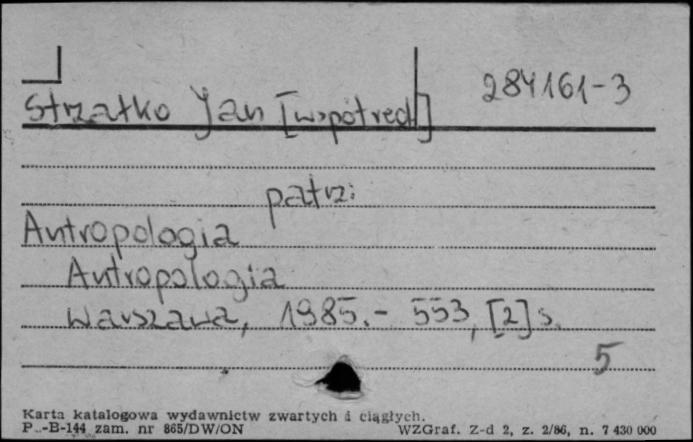 284161-3
Strzałko Jan [współred]
patrz:
Antropologia
Antropologia
Warszawa, 1985.- 553, [2] s.
5
Karta katalogowa wydawnictw zwartych i ciągłych.
P..-B-144 zam. nr 865/DW/ON WZGraf. Z-d 2, z. 2/86, n. 7 430 000